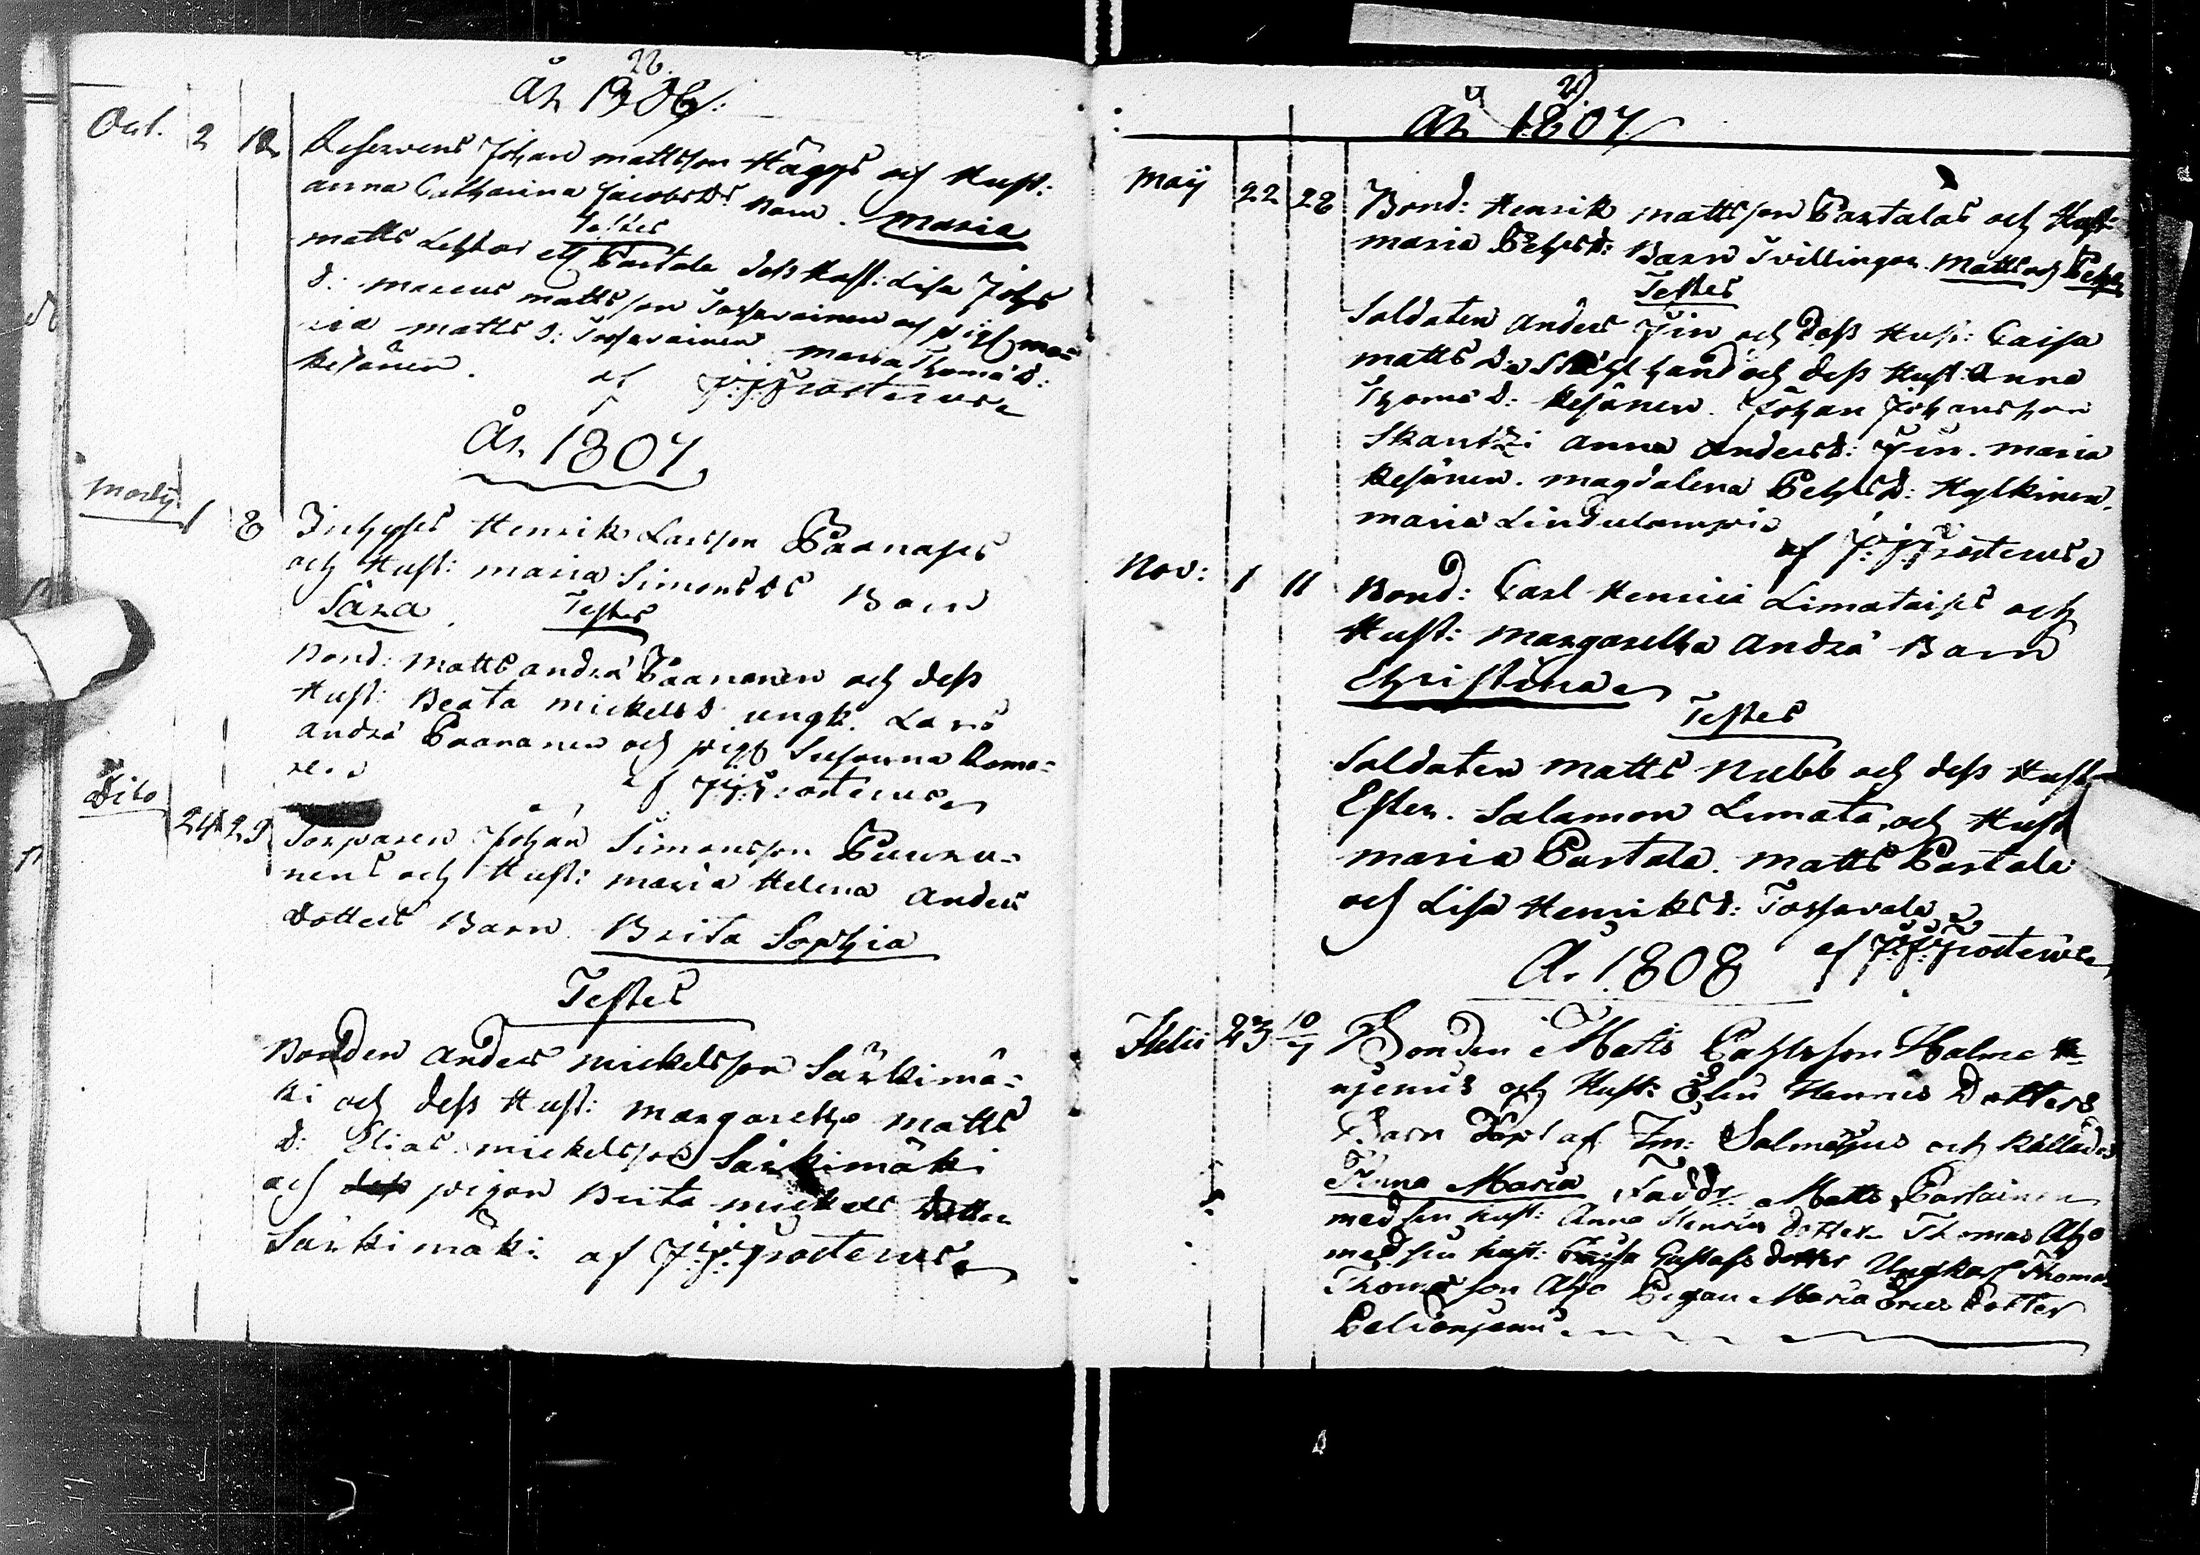 26.
År 1806.
Oct. 2 12 Reservens Johan mattsson Häggs och Hust:
anna Catharina Jacobs Ds: Barn. Maria
Testes
matts Lehtoi och Partala dess Hust: Lisa Johs
d: marcus mattsson Torsvainen och pig maa=
ria matts d: maria Thoma d:
Kesänen. af J: J: Frosterus
År 1807
Martij 1 8 Inhyses Henrik Larsson Paanases
och Hust: maria Simons ds Barn
Sara. Testes
Bond: matts andrs Paananen och dess
Hust: Beata mickels d ungk. Lars
andrs Paananen och pig Susanna Roma=
nen af J: J: Frosterus
Dito 24 29 Torparen Johan Simonsson Puuru=
nens och Hust: maria Helena anders
dotters Barn. Brita Sophia
Testes
Bonden anders mickelsson Särkimä=
ki och dess Hust: margaretha matts
d: Elias mickelsson Särkimäki
och pigan Brita mickels dotter
Särkimäki af J: J: Frosterus
27
År 1807
Maij 22 28 Bond: Henrik mattsson Partalas och Hust:
maria Pehrsd: Barn Tvillingar. Matts och Pehr
Testes
Soldaten anders Fin och dess Hust: Caisa
matts d: och dess Hust: Anna
Thoma d: Kesänen. Johan Johansson
Skantzi anna anders d: Fin. maria
Kesänen. magdalena Pehrs d: Hylkinen.
maria
af J: J: Frosterus
Nov: 1 11 Bond: Carl Henrici Limataises och
Hust: margaretha andrs Barn
Christina
Testes
Soldaten matts Nubb och dess Hust
Ester. Salamon Limata, och Hust
maria Partala. matts Partala
och Lisa Henriks d: Torsvala
af J: J: Frosterus
År 1808
Julii 23 10/7 Bonden Matts Pehrsson Halme
och Hust: Elin Henrics Dotters
Barn döpt af och kallades
Anna Maria Faddr. Matts Partainen
med sin hust: Anna Henrics dotter Thomas Aho
med sin hust: Caisa Gustafs dotter Ungkarl Thomas
Thomasson Aho Pigan Maria Erics dotter